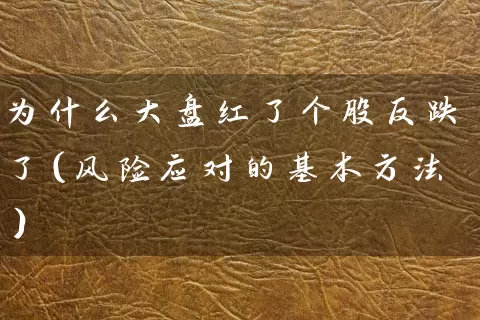 为什么大盘红了个股反跌
了(风险应对的基本方法
)